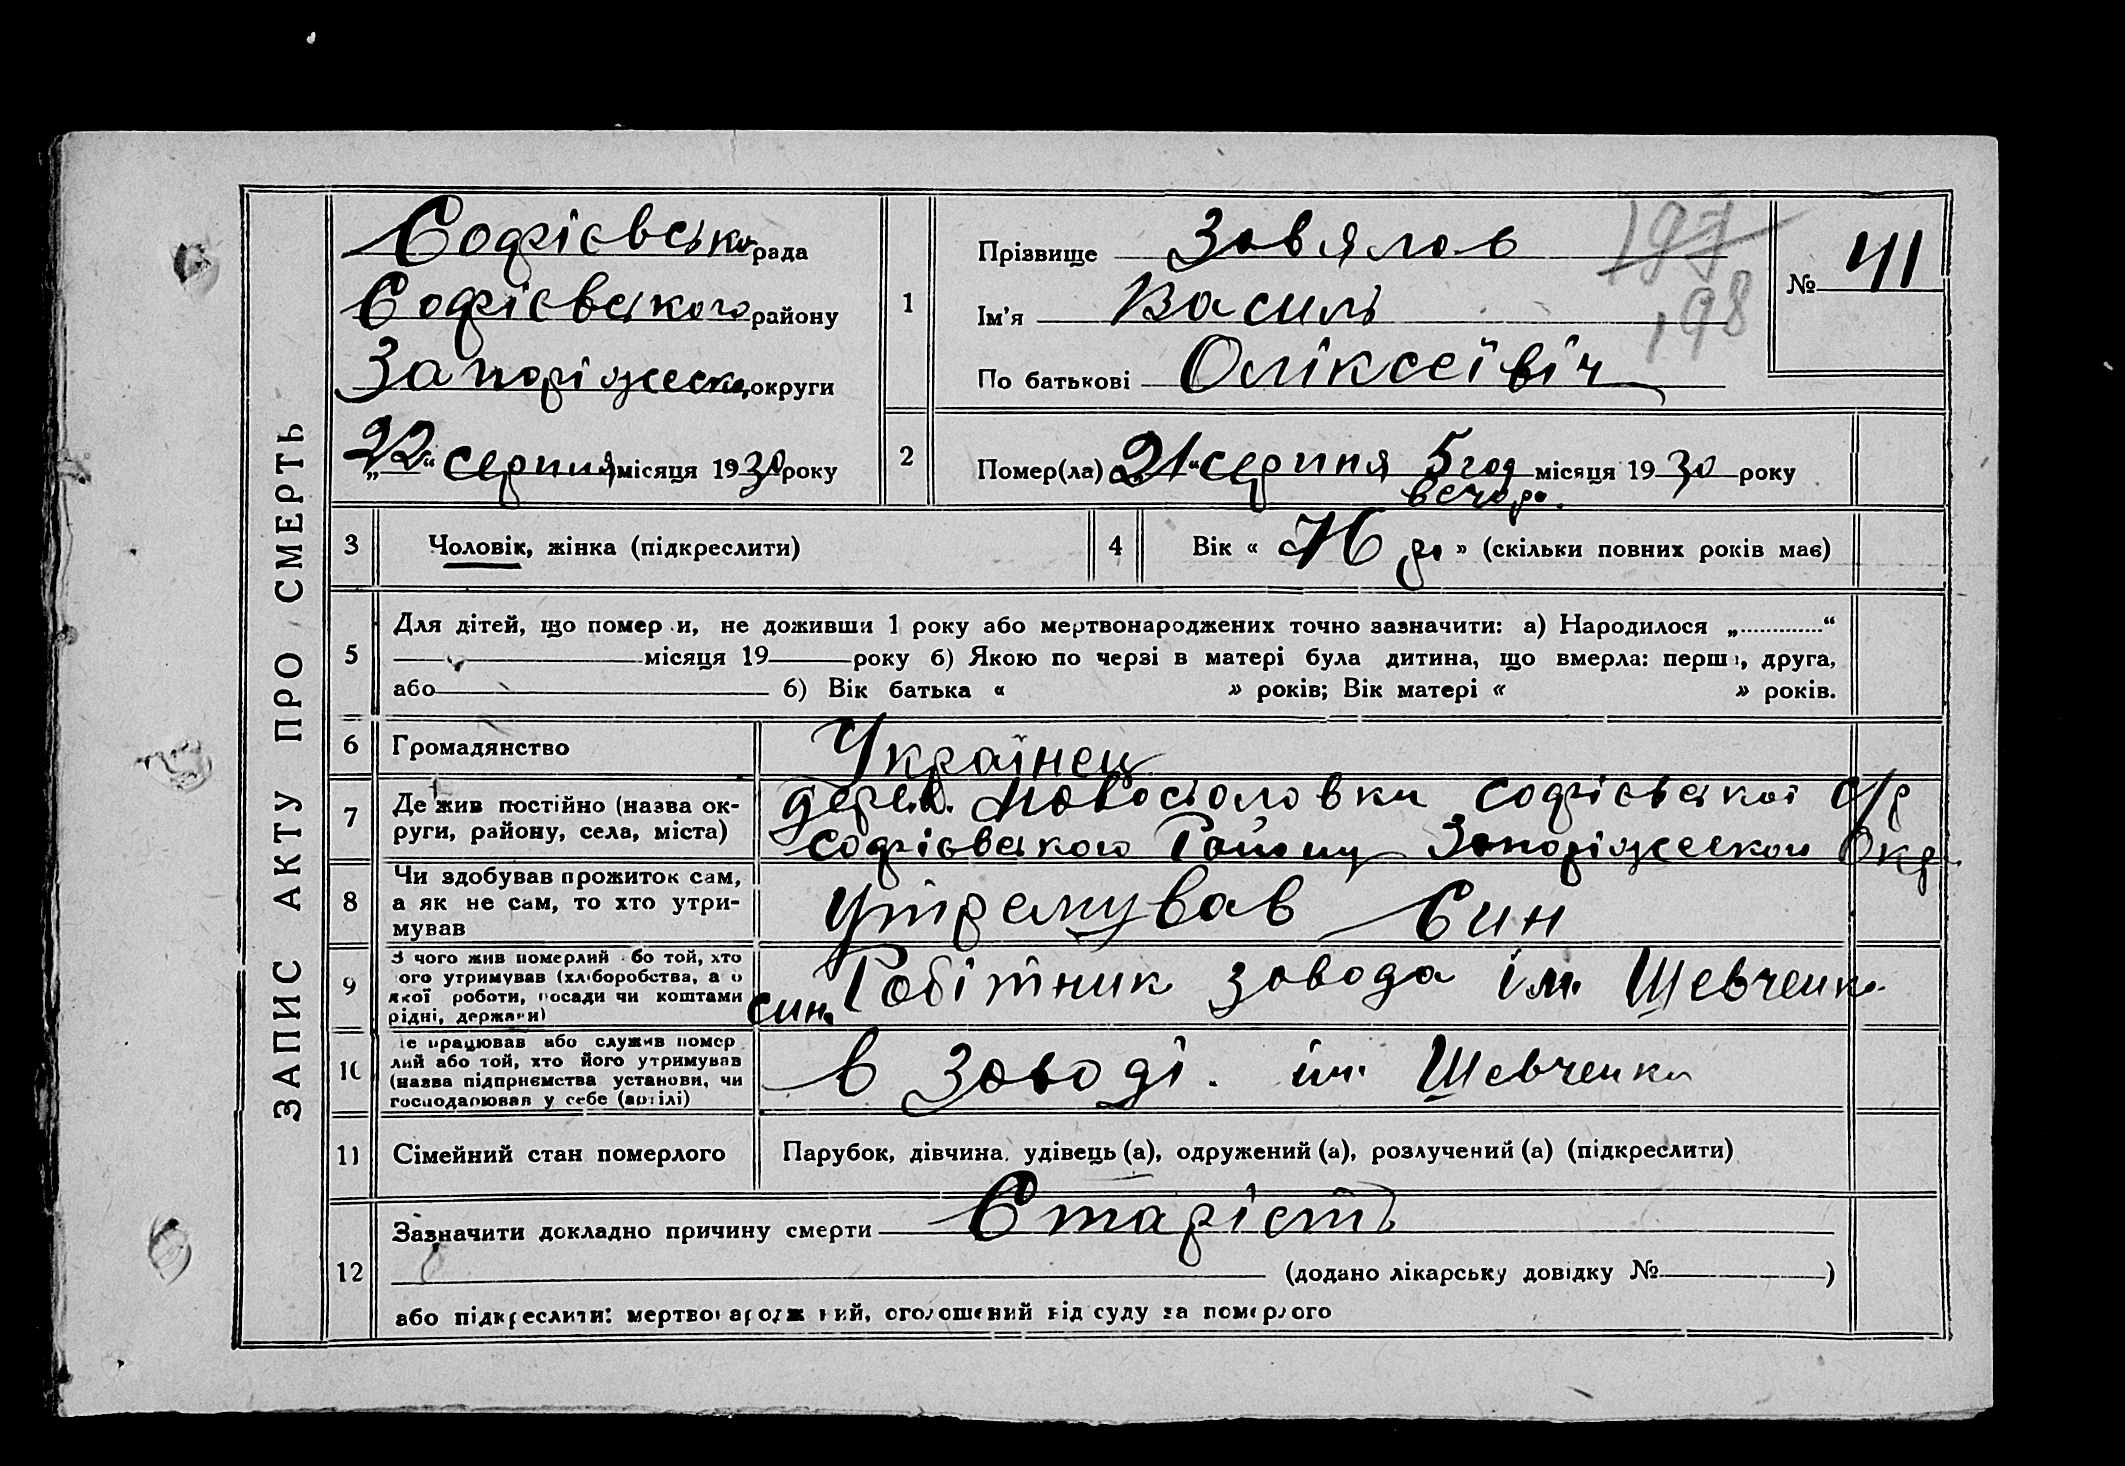 ЗАПИС АКТУ ПРО СМЕРТЬ
Софієвська рада
Софієвського району
Запоріжеско, округи
„22“ серпния місяця 1930 року
1
Прізвище Зовялов
Ім'я Василь
По батькові Оліксеївіч
197
198
№ 41
2
Помер(ла) „21“ серпня 5 год місяця 1930 року
вечор.
3
Чоловік, жінка (підкреслити)
4
Вік « » (скільки повних років має)
5
Для дітей, що помер и, не доживши 1 року або мертвонароджених точно зазначити: а) Народилося „.............“
місяця 19 року б) Якою по черзі в матері була дитина, що вмерла: перш , друга,
або б) Вік батька « » років; Вік матері « » років.
6
Громадянство
Українец
7
Де жив постійно (назва ок-
руги, району, села, міста)
дерев. Новосіоловки Софієвської с/р
Софієвського Району Запоріжеской Окр.
8
Чи здобував прожиток сам,
а як не сам, то хто утри-
мував
Утремував Син
9
З чого жив померлий бо той, хто
ого утримував (хліборобства, а о
якої роботи, посади чи коштами
рідні, держави)
син. Робітник завода ім. Шевченк.
10
е працював або служив помер
лий або той, хто його утримував
(назва підприємства установи, чи
господарював у себе (артілі)
в Заводі. ім. Шевченка
11
Сімейний стан померлого
Парубок, дівчина, удівець (а), одружений (а), розлучений (а) (підкреслити)
12
Зазначити докладно причину смерти Старість
(додано лікарську довідку № )
або підкреслити: мертвонароджений, оголошений від суду за померлого